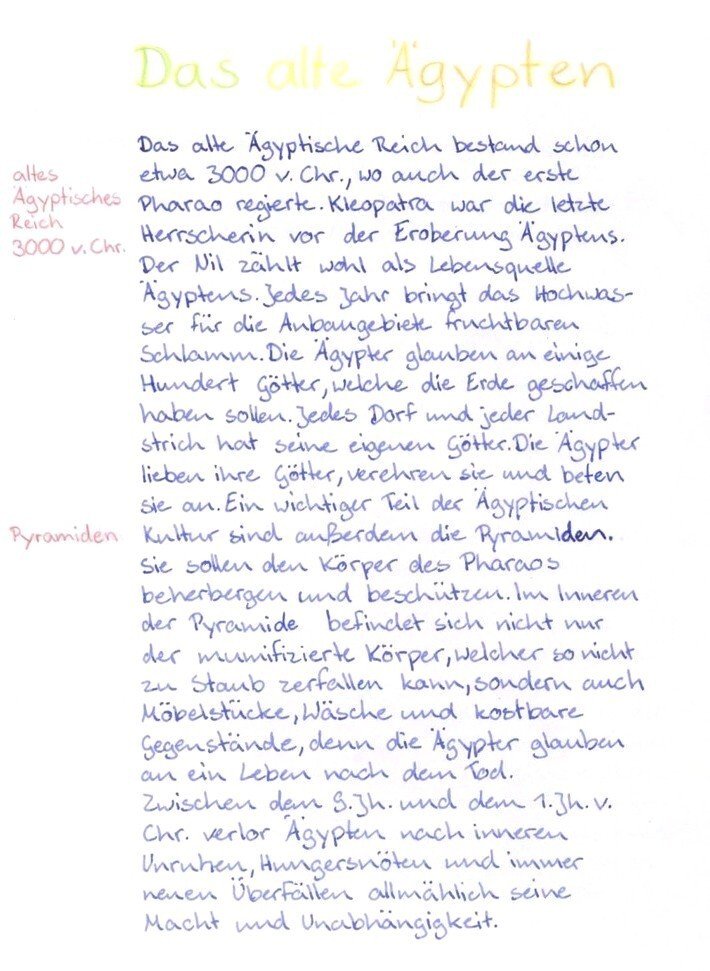 Das alte Ägypten
altes
Ägyptisches
Reich
3000 v. Chr.
Das alte Ägyptische Reich bestand schon
etwa 3000 v. Chr., wo auch der erste
Pharao regierte. Kleopatra war die letzte
Herrscherin vor der Eroberung Ägyptens.
Der Nil zählt wohl als Lebensquelle
Ägyptens. Jedes Jahr bringt das Hochwas-
ser für die Anbaugebiete fruchtbaren
Schlamm. Die Ägypter glauben an einige
Hundert Götter, welche die Erde geschaffen
haben sollen. Jedes Dorf und jeder Land-
strich hat seine eigenen Götter. Die Ägypter
lieben ihre Götter, verehren sie und beten
sie an. Ein wichtiger Teil der Ägyptischen
Pyramiden
Kultur sind außerdem die Pyramiden.
Sie sollen den Körper des Pharaos
beherbergen und beschützen. Im Inneren
der Pyramide befindet sich nicht nur
der mumifizierte Körper, welcher so nicht
zu Staub zerfallen kann, sondern auch
Möbelstücke, Wäsche und kostbare
Gegenstände, denn die Ägypter glauben
an ein Leben nach dem Tod.
Zwischen dem 9. Jh. und dem 1. Jh. v.
Chr. verlor Ägypten nach inneren
Unruhen, Hungersnöten und immer
neuen Überfällen allmählich seine
Macht und Unabhängigkeit.